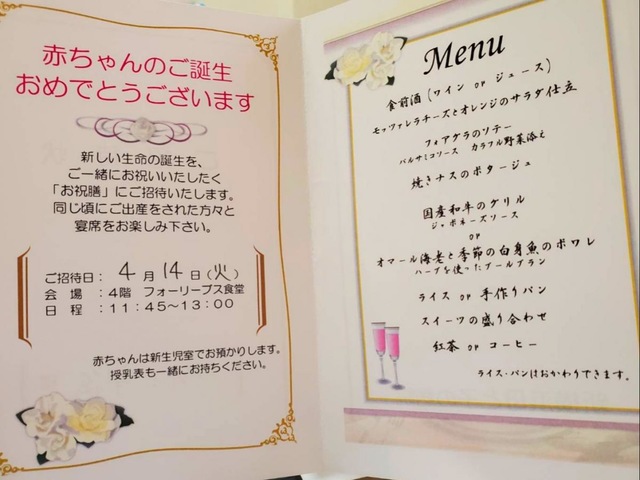 赤ちゃんのご誕生
おめでとうございます
新しい生命の誕生を、
ご一緒にお祝いいたしたく
「お祝膳」にご招待いたします。
同じ頃にご出産をされた方々と
宴席をお楽しみ下さい。
ご招待日： 4月14日(火)
会　場 ：4階　フォーリーブス食堂
日　程 ：11：45～13：00
赤ちゃんは新生児室でお預かりします。
授乳表も一緒にお持ちください。
Menu
食前酒(ワイン or ジュース)
モッツァレラチーズとオレンジのサラダ仕立
フォアグラのソテー
バルサミコソース　カラフル野菜添え
焼きナスのポタージュ
国産和牛のグリル
ジャポネーズソース
or
オマール海老と季節の白身魚のポワレ
ハーブを使ったブールブラン
ライス or 手作りパン
スイーツの盛り合わせ
紅茶 or コーヒー
ライス・パンはおかわりできます。